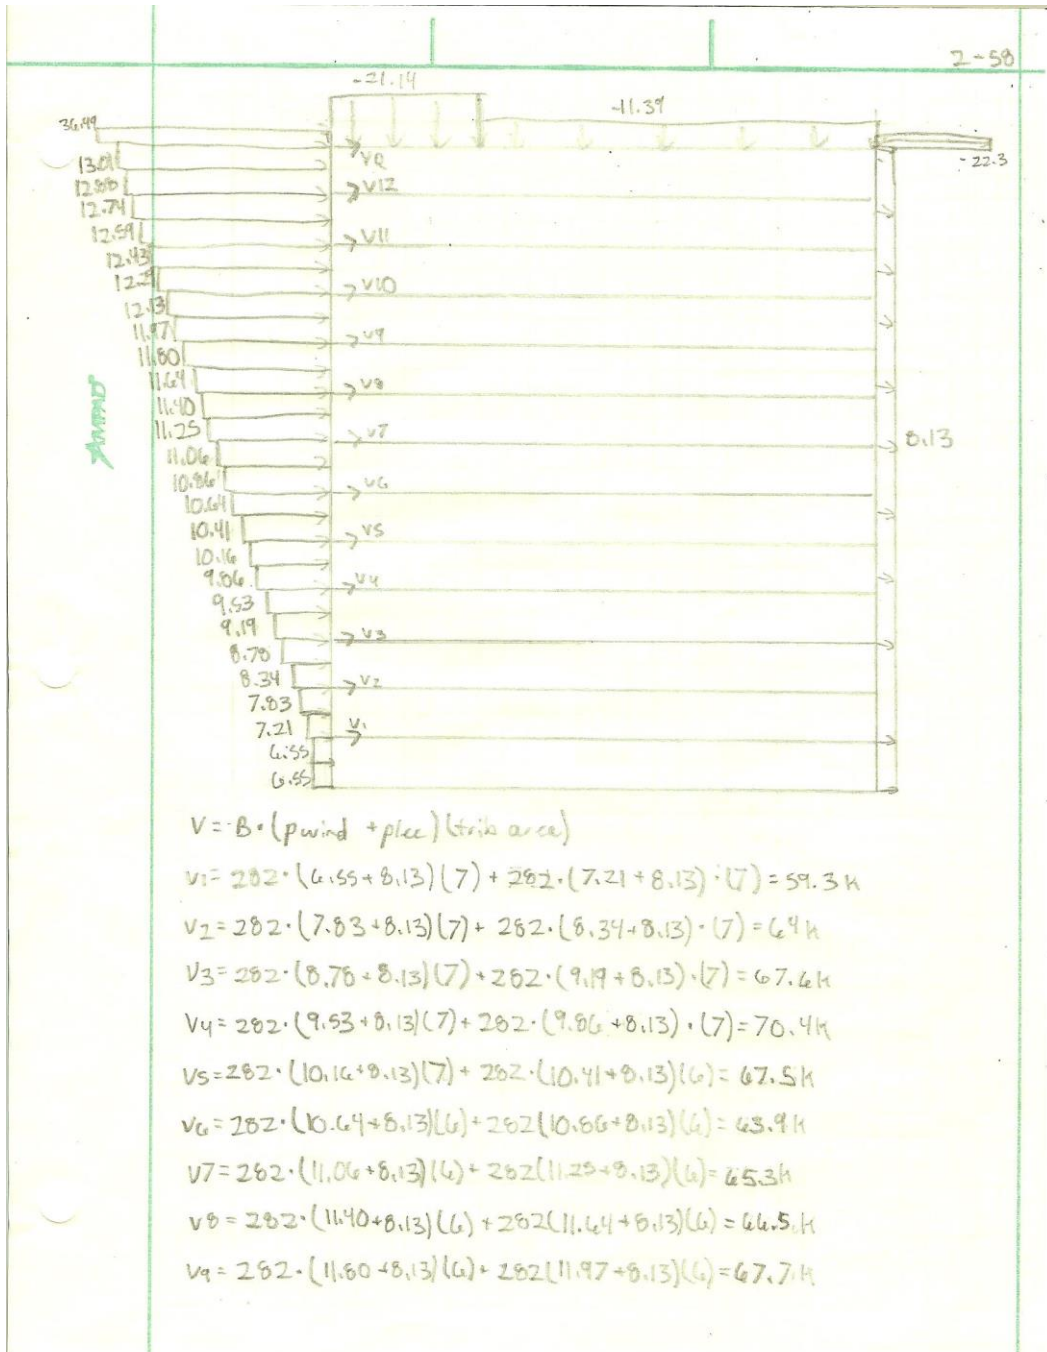 2-58
-21.14
-11.39
36.49
-22.3
13.01
VR
12.88
V12
12.74
12.59
V11
12.43
12.2
V10
12.13
11.97
V9
11.80
11.64
V8
11.40
11.25
V7
8.13
11.06
10.86
V6
10.64
10.41
V5
10.16
9.86
V4
9.53
9.19
V3
8.78
8.34
V2
7.83
7.21
V1
6.55
6.55
AMPAD
V = B·(pwind + plee)(trib area)
V1 = 282·(6.55+8.13)(7) + 282·(7.21+8.13)·(7) = 59.3k
V2 = 282·(7.83+8.13)(7) + 282·(8.34+8.13)·(7) = 64k
V3 = 282·(8.78+8.13)(7) + 282·(9.19+8.13)·(7) = 67.6k
V4 = 282·(9.53+8.13)(7) + 282·(9.86+8.13)·(7) = 70.4k
V5 = 282·(10.16+8.13)(7) + 282·(10.41+8.13)(6) = 67.5k
V6 = 282·(10.64+8.13)(6) + 282(10.86+8.13)(6) = 63.9k
V7 = 282·(11.06+8.13)(6) + 282(11.25+8.13)(6) = 65.3k
V8 = 282·(11.40+8.13)(6) + 282(11.64+8.13)(6) = 66.5k
V9 = 282·(11.80+8.13)(6) + 282(11.97+8.13)(6) = 67.7k